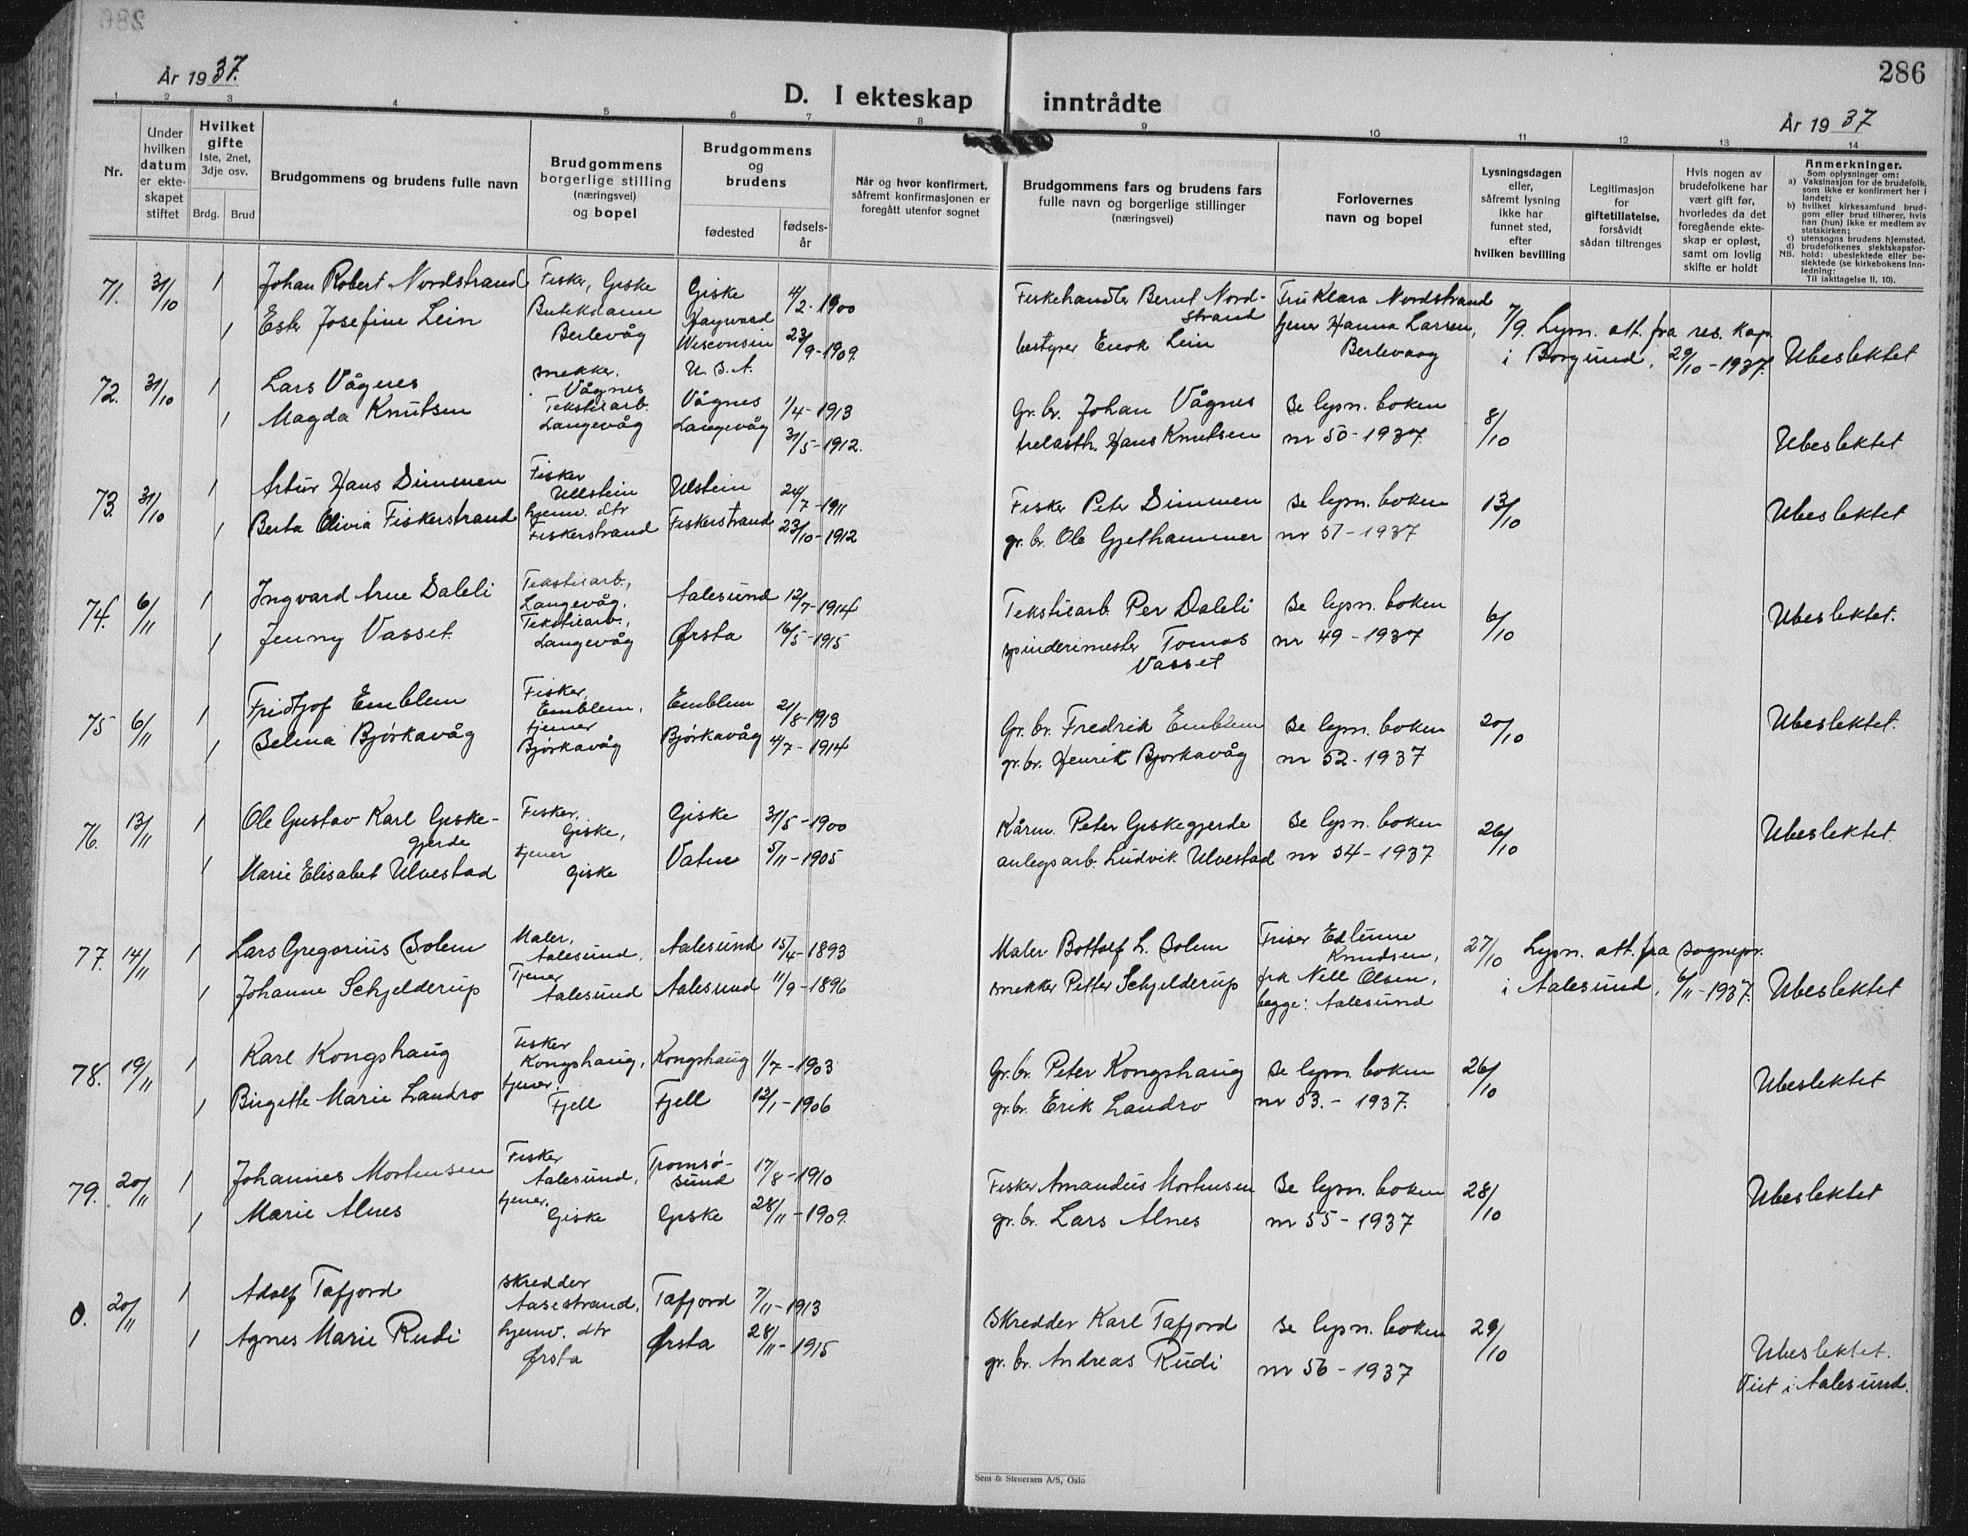 286
År 1937.
D. I ekteskap inntrådte
År 1937
1 2 3 4 5 6 7 8 9 10 11 12 13 14
Nr.
Under hvilken datum er ekteskapet stiftet
Hvilket gifte 1ste, 2net, 3dje osv.
Brdg. Brud
Brudgommens og brudens fulle navn
Brudgommens borgerlige stilling (næringsvei) og bopel
Brudgommens og brudens
fødested
fødselsår
Når og hvor konfirmert, såfremt konfirmasjonen er foregått utenfor sognet
Brudgommens fars og brudens fars fulle navn og borgerlige stillinger (næringsvei)
Forlovernes navn og bopel
Lysningsdagen eller, såfremt lysning ikke har funnet sted, efter hvilken bevilling
Legitimasjon for giftetillatelse, forsåvidt sådan tiltrenges
Hvis nogen av brudefolkene har vært gift før, hvorledes da det foregående ekteskap er opløst, samt om lovlig skifte er holdt
Anmerkninger.
Som oplysninger om:
a) Vaksinasjon for de brudefolk, som ikke er konfirmert her i landet;
b) hvilket kirkesamfund brudgom eller brud tilhører, hvis han (hun) ikke er medlem av statskirken;
c) utensogns brudens hjemsted.
d) brudefolkenes slektskapsforhold: ubeslektede eller beslektede (se kirkebokens Innledning:
NB.
Til iakttagelse II, 10).
71. 31/10 1 Johan Robert Nordstrand Fisker, Giske Giske 4/2-1900 Fiskehandler Bernt Nordstrand Fru Klara Nordstrand 7/9. Lysn. att. fra res. kap.
1 Ester Josefine Lein Butikdame Berlevåg Hayward Wisconsin U.S.A. 23/9-1909. bestyrer Enok Lein tjener Hanna Larsen, Berlevaag i Borgund, 29/10-1937. Ubeslektet
72. 31/10 1 Lars Vågnes snekker. Vågnes Vågnes 1/4-1913 Gr. br. Johan Vågnes Se lysn. boken 8/10
1 Magda Knutsen Tekstilarb. Langevåg Langevåg 31/5-1912. trelasth. Hans Knutsen nr 50-1937. Ubeslektet
73. 31/10 1 Artur Hans Dimmen Fisker Ullstein Ulstein 24/7-1911 Fisker Peter Dimmen Se lysn. boken 13/10 Ubeslektet
1 Berta Olivia Fiskerstrand hjemv. dtr Fiskerstrand Fiskerstrand 23/10-1912 gr. br. Ole Gjethammer nr 51-1937
74. 6/11 1 Ingvard Arne Daleli Tekstilarb., Langevåg. Aalesund 12/7-1914 Tekstilarb. Per Daleli Se lysn. boken 6/10 Ubeslektet.
1 Jenny Vasset. Tekstilarb., Langevåg Ørsta 16/5-1915 spinderimester Tomas Vasset nr 49-1937
75 6/11 1 Fridtjof Emblem Fisker, Emblem, Emblem 21/8-1913 Gr. br. Fredrik Emblem Se lysn. boken 20/10 Ubeslektet.
1 Selma Bjørkavåg tjener Bjørkavåg Bjørkavåg 4/7-1914 gr. br. Henrik Bjørkavåg nr 52-1937
76. 13/11 1 Ole Gustav Karl Giskegjerde Fisker, Giske, Giske 31/5-1900 Kårm. Peter Giskegjerde Se lysn. boken 26/10 Ubeslektet.
1 Marie Elisabet Ulvestad tjener Giske Vatne 5/11-1905 anlegsarb. Ludvik Ulvestad nr 54-1937
77. 14/11 1 Lars Gregorius Solem Maler, Aalesund, Aalesund 15/4-1893 Maler Bottolf L. Solem Frisør Knudsen, 27/10 Lysn. att. fra sognepr.
1 Johanne Schjelderup Tjener Aalesund Aalesund 11/9-1896 snekker Petter Schjelderup frk Nell Olsen, begge: Aalesund i Aalesund, 6/11-1937. Ubeslektet
78. 19/11 1 Karl Kongshaug Fisker Kongshaug, Kongshaug 1/7-1903 Gr. br. Peter Kongshaug Se lysn. boken 26/10 Ubeslektet
1 Birgitte Marie Landro tjener, Fjell Fjell 12/1-1906 gr. br. Erik Landro nr 53.-1937.
79. 20/11 1 Johannes Mortensen Fisker Aalesund, Tromsøsund 17/8-1910 Fisker Amandus Mortensen Se lysn. boken 28/10 Ubeslektet
1 Marie Alnes tjener, Giske Giske 28/11-1909. gr. br. Lars Alnes nr 55-1937
0. 20/11 1 Adolf Tafjord Skredder Aasestrand, Tafjord 7/11-1913 Skredder Karl Tafjord Se lysn. boken 29/10
1 Agnes Marie Rudi hjemv. dtr Ørsta Ørsta 28/11-1915 gr. br. Andreas Rudi nr 56-1937 Ubeslektet.
Viet i Aalesund.
Sem & Stenersen A/S, Oslo